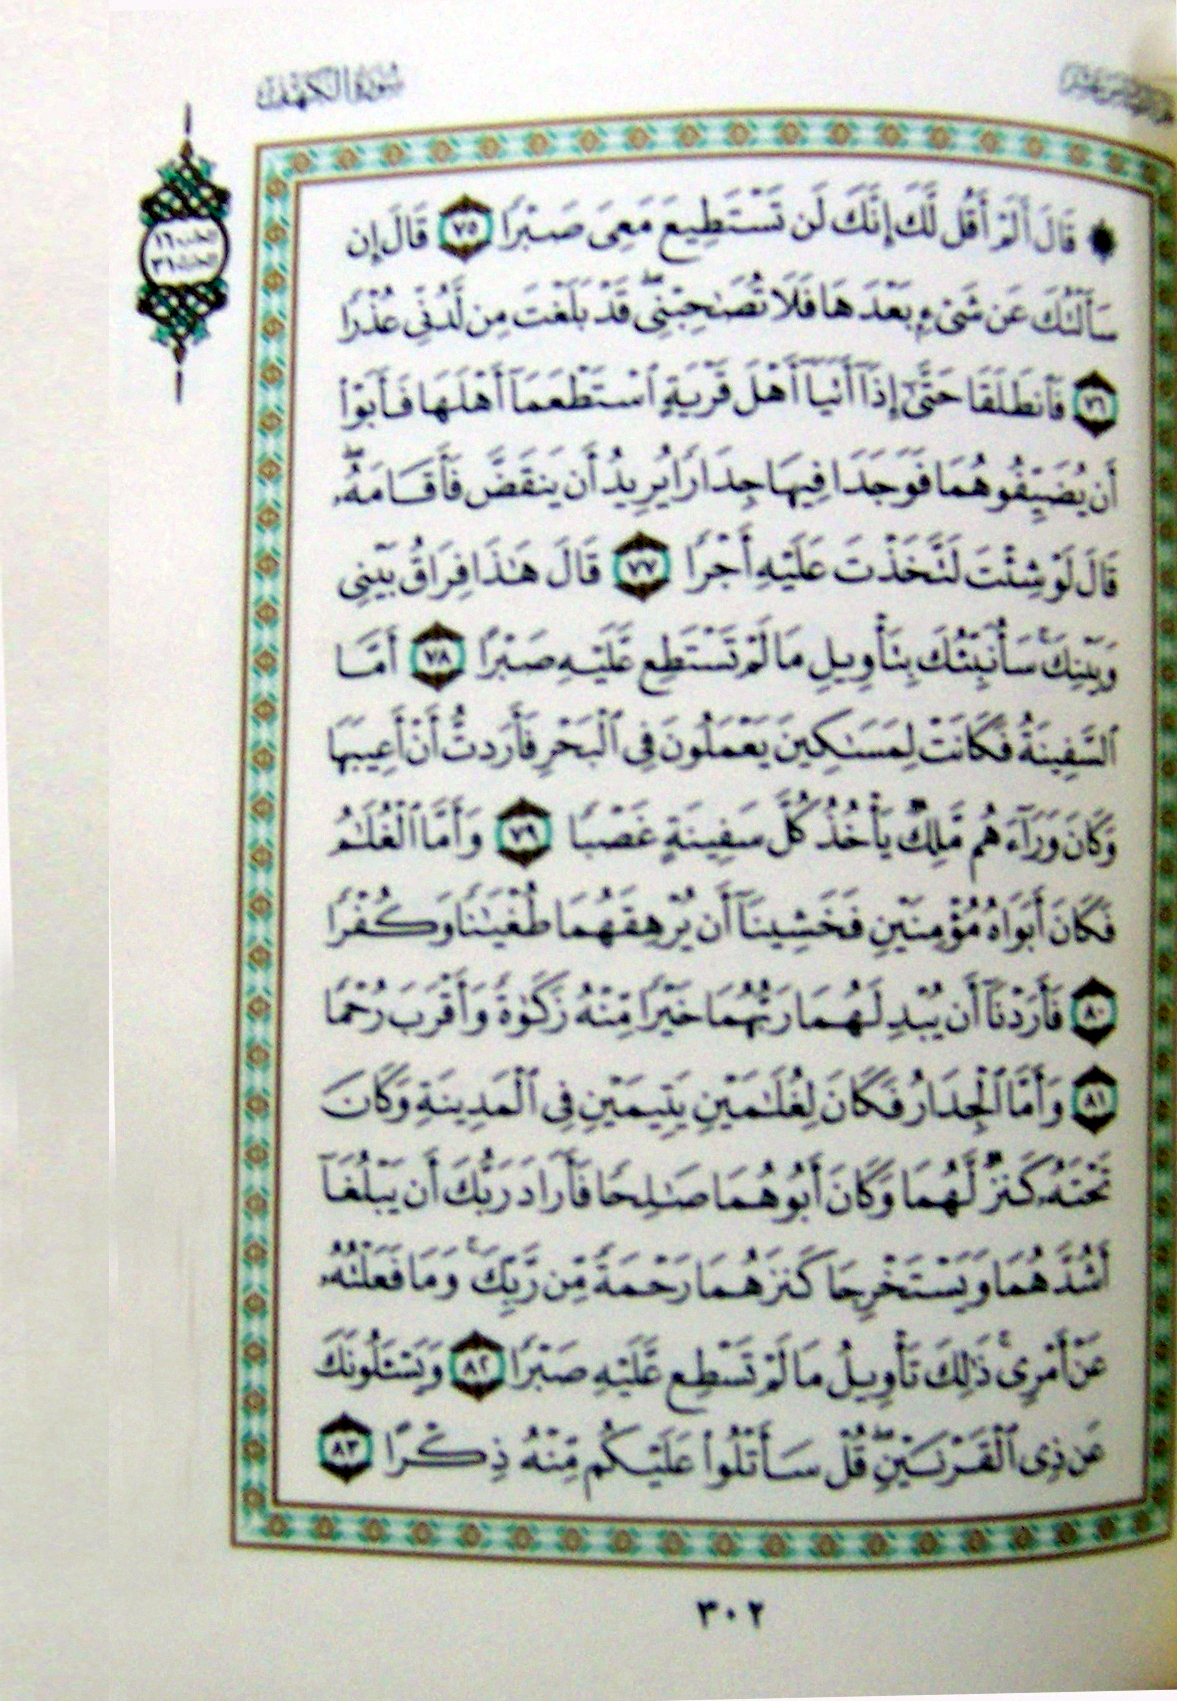 سُورَةُ الكَهْفِ
۞ قَالَ أَلَمْ أَقُل لَّكَ إِنَّكَ لَن تَسْتَطِيعَ مَعِىَ صَبْرًا ٧٥ قَالَ إِن
سَأَلْتُكَ عَن شَىْءٍۭ بَعْدَهَا فَلَا تُصَٰحِبْنِىۖ قَدْ بَلَغْتَ مِن لَّدُنِّى عُذْرًا
٧٦ فَٱنطَلَقَا حَتَّىٰٓ إِذَآ أَتَيَآ أَهْلَ قَرْيَةٍ ٱسْتَطْعَمَآ أَهْلَهَا فَأَبَوْا۟
أَن يُضَيِّفُوهُمَا فَوَجَدَا فِيهَا جِدَارًا يُرِيدُ أَن يَنقَضَّ فَأَقَامَهُۥۖ
قَالَ لَوْ شِئْتَ لَتَّخَذْتَ عَلَيْهِ أَجْرًا ٧٧ قَالَ هَٰذَا فِرَاقُ بَيْنِى
وَبَيْنِكَۚ سَأُنَبِّئُكَ بِتَأْوِيلِ مَا لَمْ تَسْتَطِع عَّلَيْهِ صَبْرًا ٧٨ أَمَّا
ٱلسَّفِينَةُ فَكَانَتْ لِمَسَٰكِينَ يَعْمَلُونَ فِى ٱلْبَحْرِ فَأَرَدتُّ أَنْ أَعِيبَهَا
وَكَانَ وَرَآءَهُم مَّلِكٌ يَأْخُذُ كُلَّ سَفِينَةٍ غَصْبًا ٧٩ وَأَمَّا ٱلْغُلَٰمُ
فَكَانَ أَبَوَاهُ مُؤْمِنَيْنِ فَخَشِينَآ أَن يُرْهِقَهُمَا طُغْيَٰنًا وَكُفْرًا
٨٠ فَأَرَدْنَآ أَن يُبْدِلَهُمَا رَبُّهُمَا خَيْرًا مِّنْهُ زَكَوٰةً وَأَقْرَبَ رُحْمًا
٨١ وَأَمَّا ٱلْجِدَارُ فَكَانَ لِغُلَٰمَيْنِ يَتِيمَيْنِ فِى ٱلْمَدِينَةِ وَكَانَ
تَحْتَهُۥ كَنزٌ لَّهُمَا وَكَانَ أَبُوهُمَا صَٰلِحًا فَأَرَادَ رَبُّكَ أَن يَبْلُغَآ
أَشُدَّهُمَا وَيَسْتَخْرِجَا كَنزَهُمَا رَحْمَةً مِّن رَّبِّكَۚ وَمَا فَعَلْتُهُۥ
عَنْ أَمْرِىۚ ذَٰلِكَ تَأْوِيلُ مَا لَمْ تَسْطِع عَّلَيْهِ صَبْرًا ٨٢ وَيَسْـَٔلُونَكَ
عَن ذِى ٱلْقَرْنَيْنِۖ قُلْ سَأَتْلُوا۟ عَلَيْكُم مِّنْهُ ذِكْرًا ٨٣
الحزب ١٦
الحزب ٣١
٣٠٢